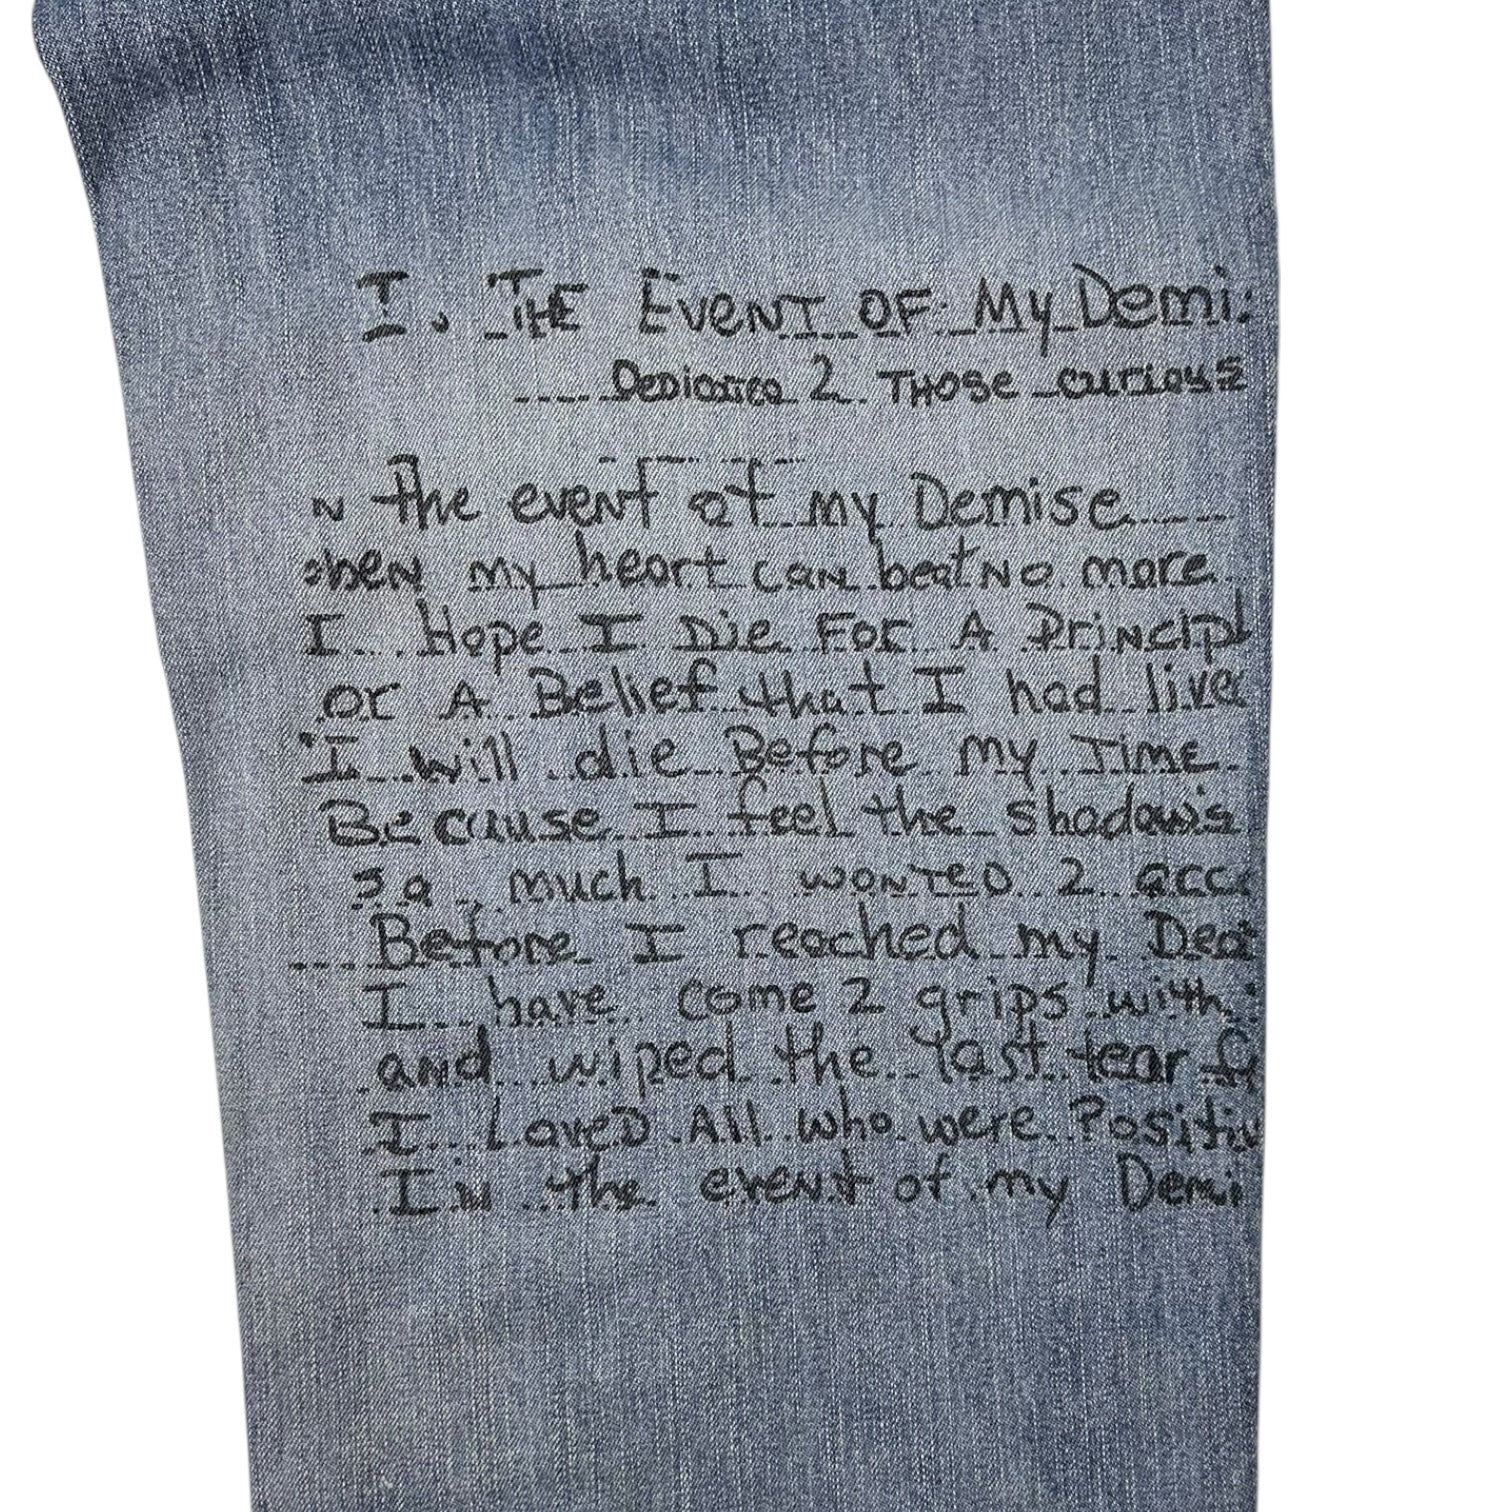 I. THE EVENT OF My Demi
DEDICATED 2 THOSE curious
N the event of my Demise
when my heart can beat No more
I Hope I Die For A Principl
or A Belief that I had live
I will die Before my Time
Because I feel the shadow's
so much I wanted 2 acc
Before I reached my Deat
I have come 2 grips with
and wiped the last tear f
I Loved All who were Positiv
IN the event of my Demi